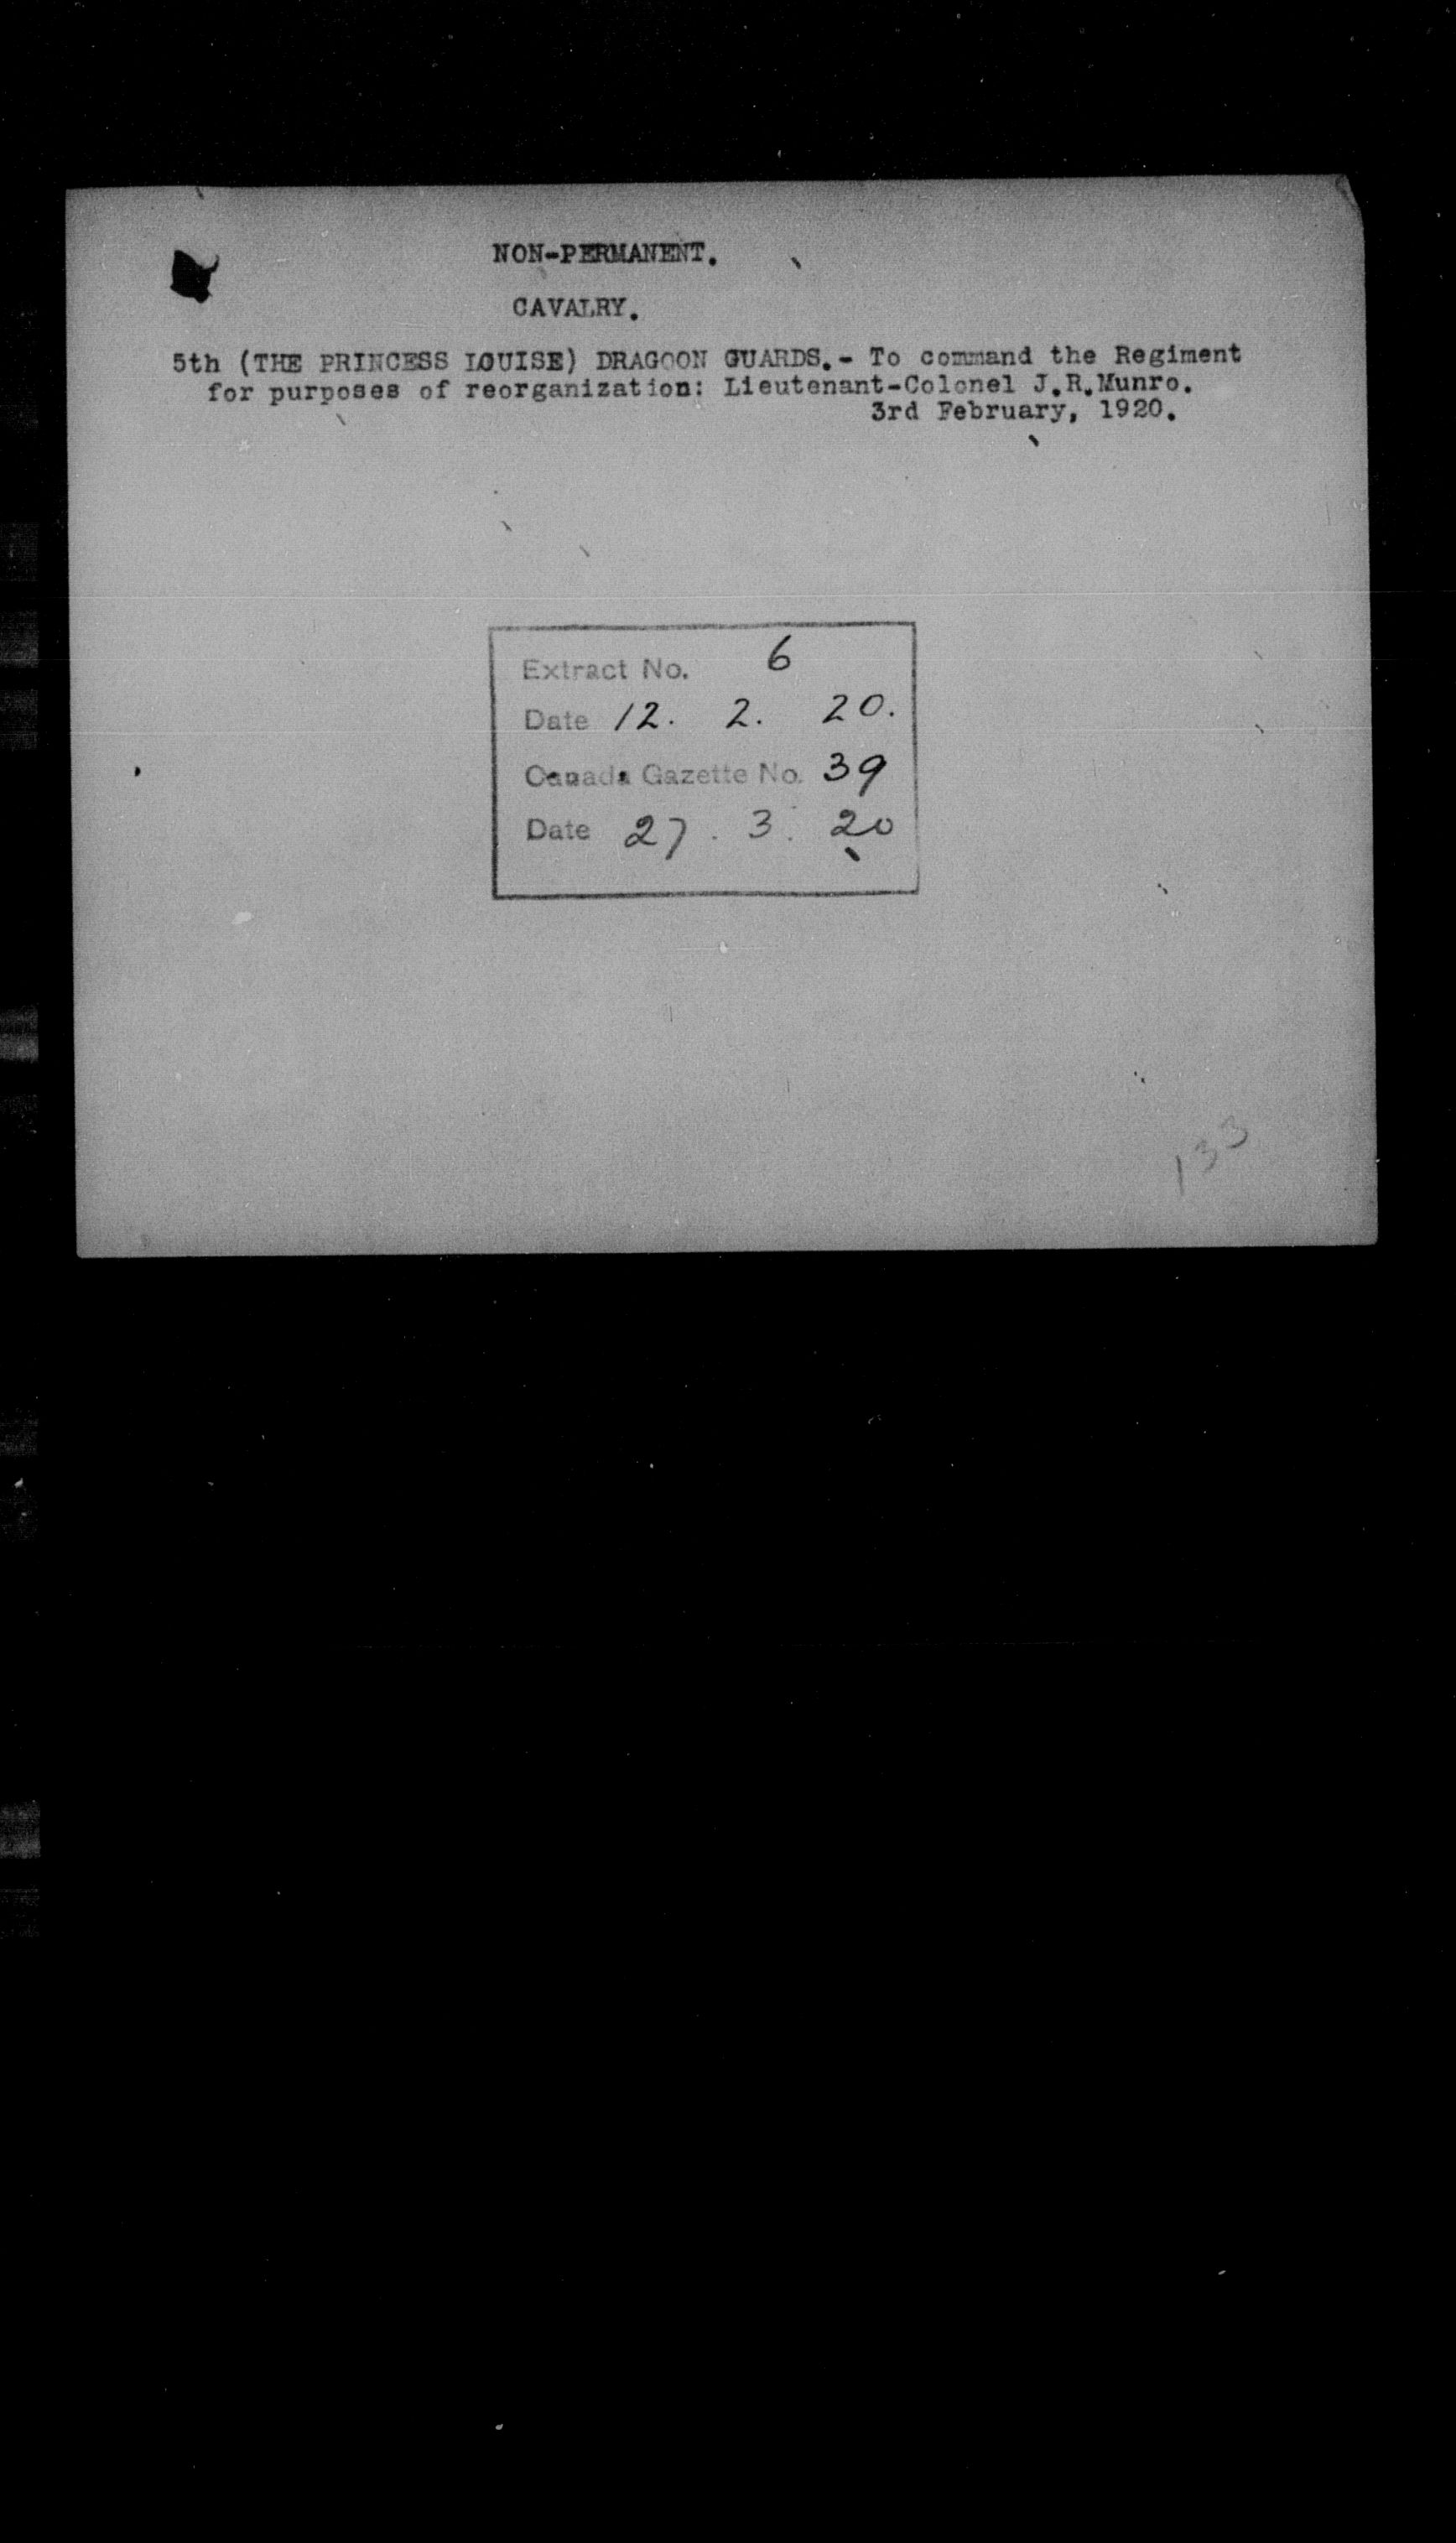 NON-PERMANENT.
CAVALRY.
5th (THE PRINCESS LOUISE) DRAGOON GUARDS.- To command the Regiment
for purposes of reorganization: Lieutenant-Colonel J.R.Munro.
3rd February, 1920.
Extract No. 6
Date 12. 2. 20.
Canada Gazette No. 39
Date 27. 3. 20
133